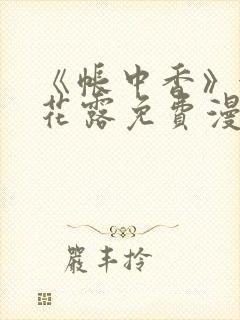 《帐中香》
花露免費漫
嚴丰拎